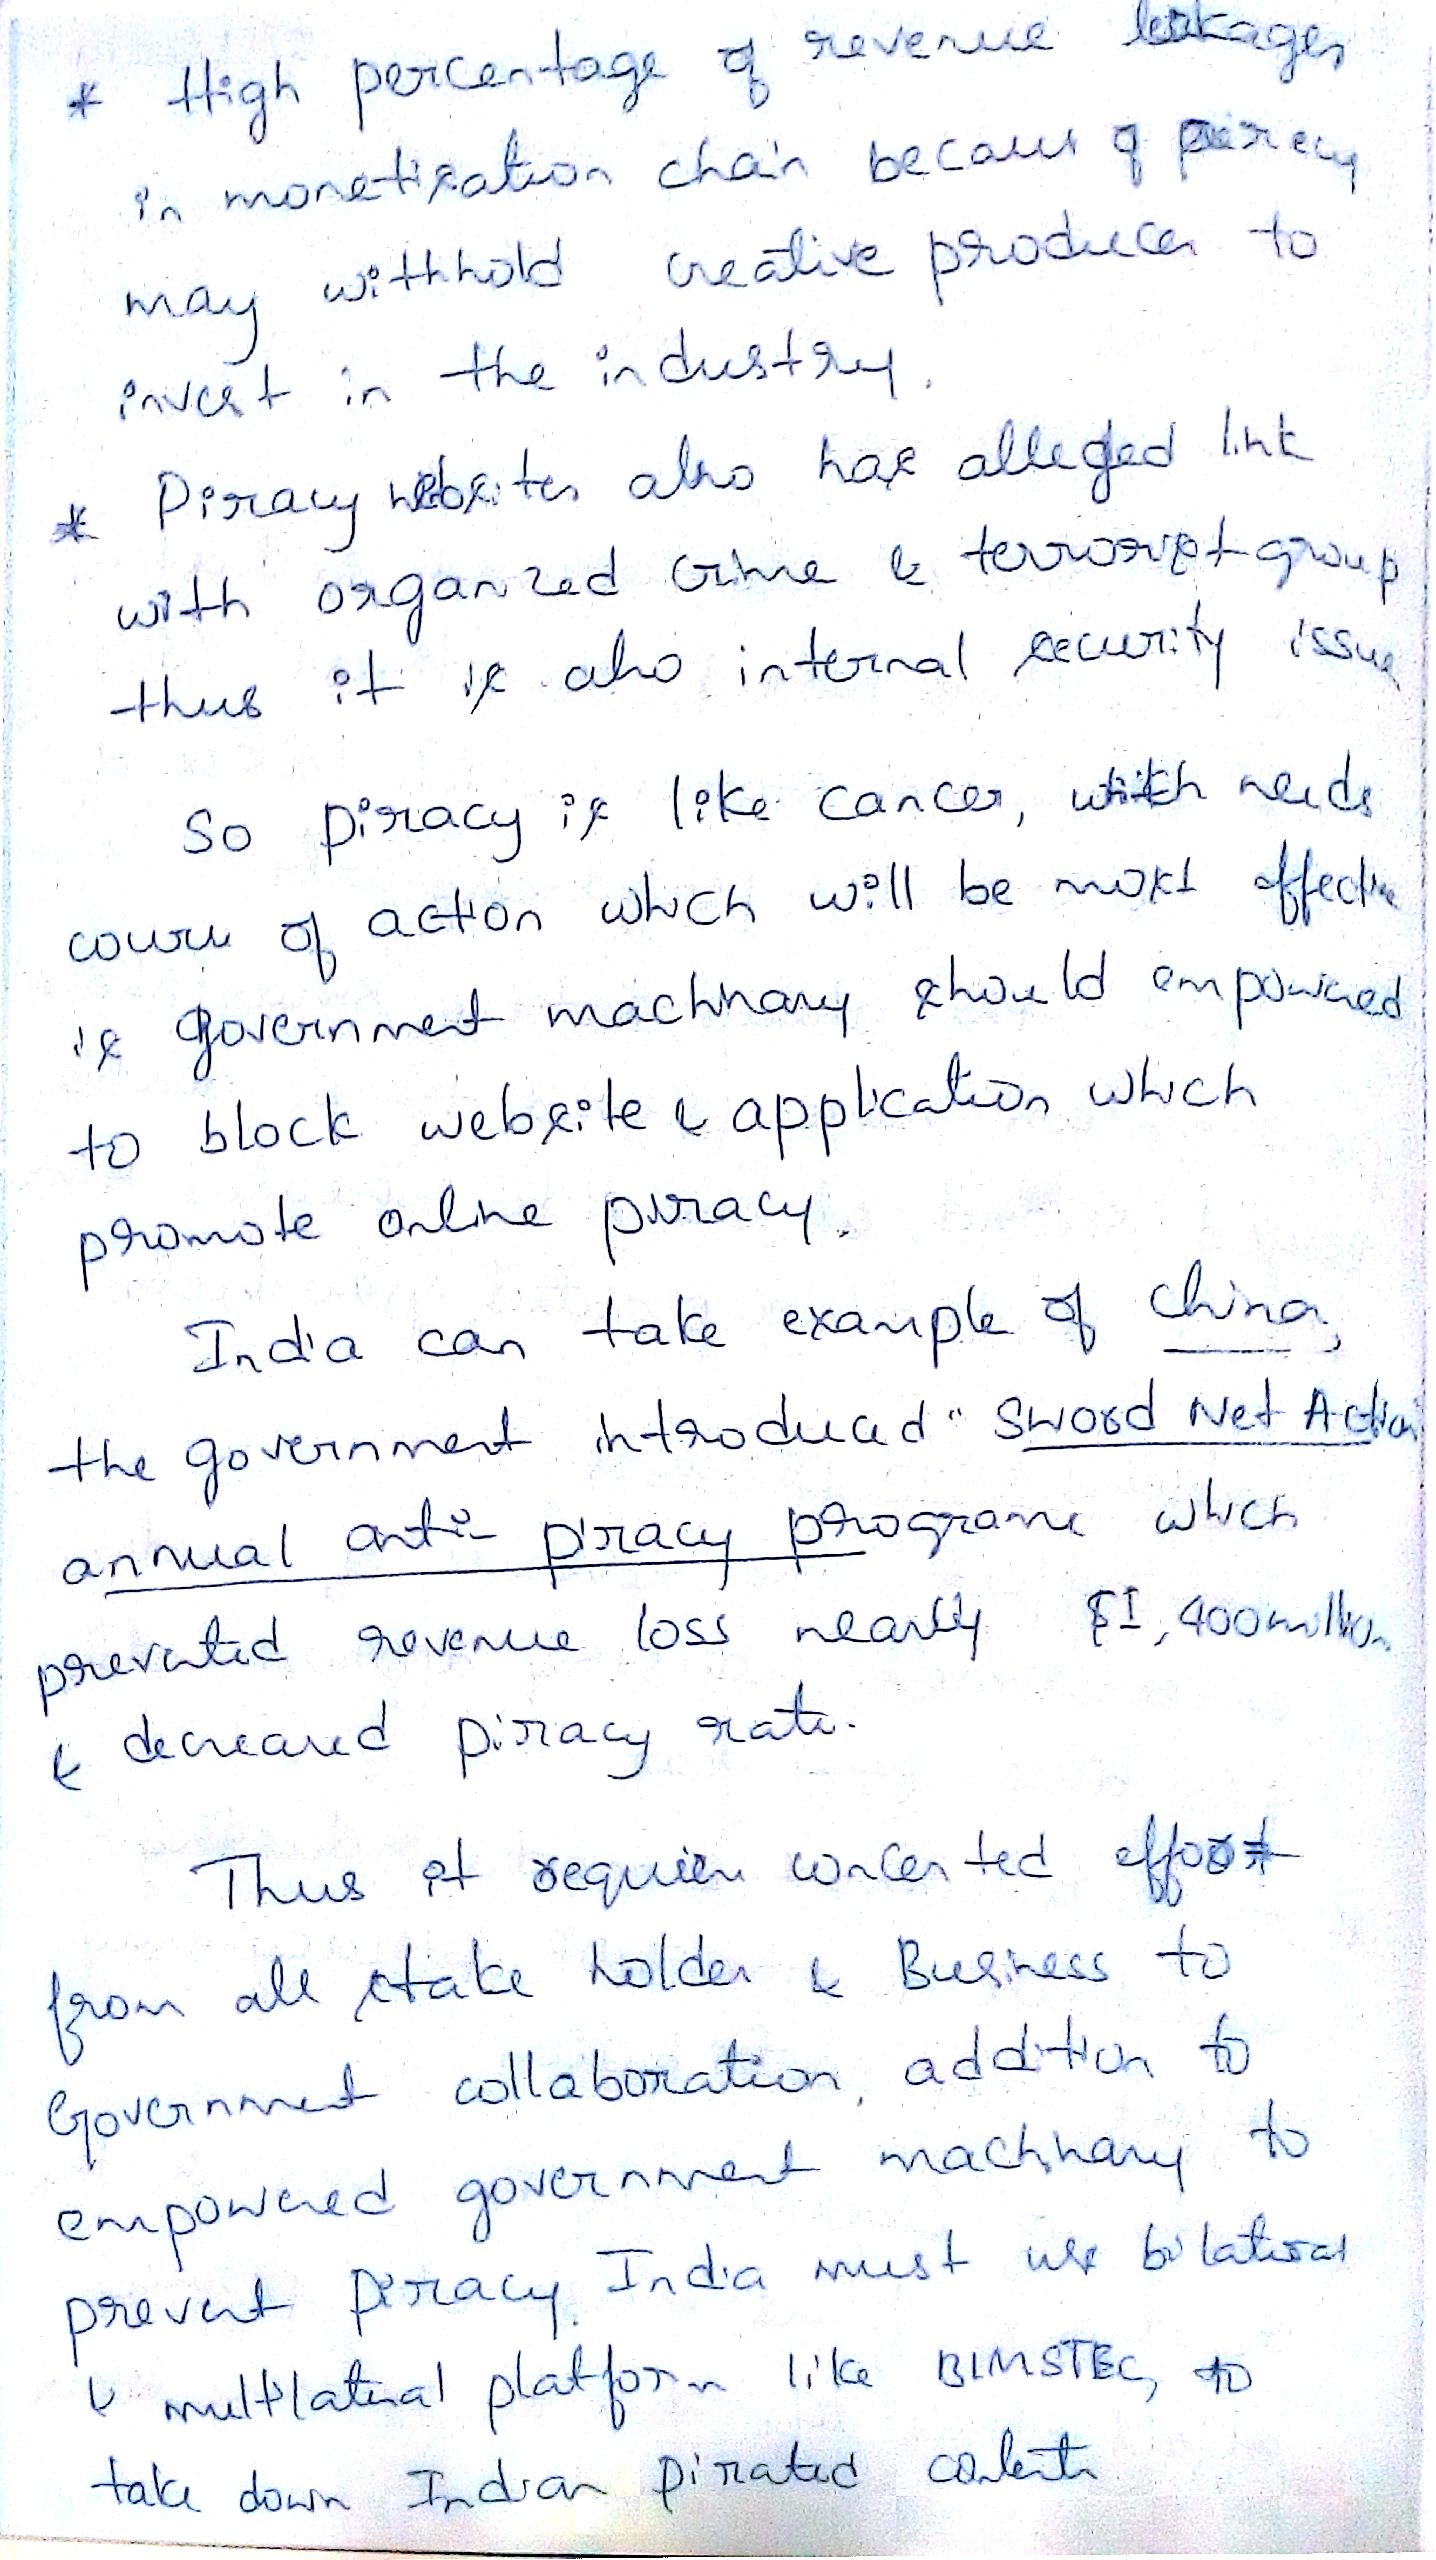 * High percentage of revenue leakages
in monetization chain because of piracy
may withhold creative producer to
invest in the industry.
* Piracy websites also has alleged link
with organized crime & terrorist group
thus it is also internal security issue
So piracy is like cancer, which needs
course of action which will be most effective
is government machinary should empowered
to block website & application which
promote online piracy.
India can take example of China,
the government introduced "Sword Net Action
annual anti-piracy programe which
prevented revenue loss nearly $1,400 million
& decreased piracy rate.
Thus it requires concerted effort
from all stake holder & Business to
Government collaboration, addition to
empowered government machinary to
prevent piracy. India must use bilateral
& multilateral platform like BIMSTEC, to
take down Indian pirated contents